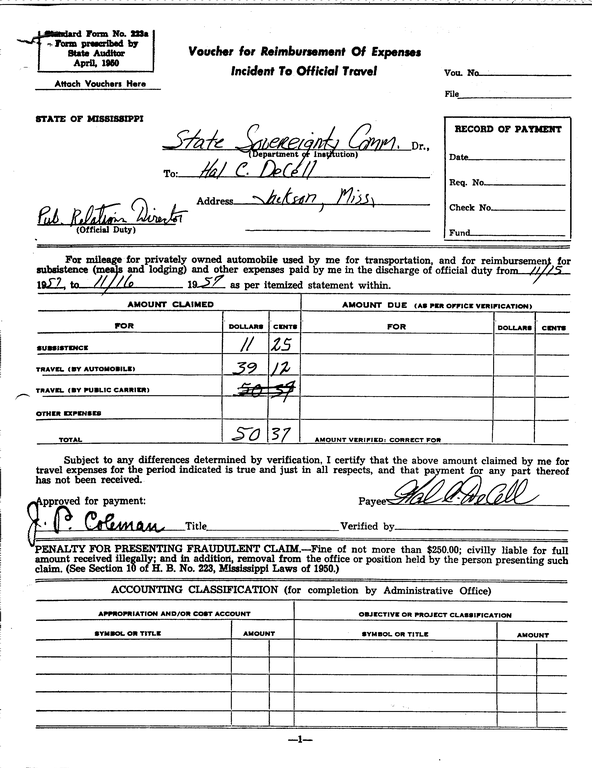 Standard Form No. 223a
Form prescribed by
State Auditor
April, 1950
Attach Vouchers Here
Voucher for Reimbursement Of Expenses
Incident To Official Travel
Vou. No.
File
STATE OF MISSISSIPPI
State Sovereignty Comm. Dr.,
(Department or Institution)
To: Hal C. DeCell
Address Jackson, Miss,
Pub. Relations Director
(Official Duty)
RECORD OF PAYMENT
Date
Req. No.
Check No.
Fund
For mileage for privately owned automobile used by me for transportation, and for reimbursement for
subsistence (meals and lodging) and other expenses paid by me in the discharge of official duty from 11/15
1957, to 11/16 1957 as per itemized statement within.
AMOUNT CLAIMED AMOUNT DUE (AS PER OFFICE VERIFICATION)
FOR DOLLARS CENTS FOR DOLLARS CENTS
SUBSISTENCE 11 25
TRAVEL (BY AUTOMOBILE) 39 12
TRAVEL (BY PUBLIC CARRIER)
OTHER EXPENSES
TOTAL 50 37 AMOUNT VERIFIED: CORRECT FOR
Subject to any differences determined by verification, I certify that the above amount claimed by me for
travel expenses for the period indicated is true and just in all respects, and that payment for any part thereof
has not been received.
Approved for payment: Payee Hal C. DeCell
J. P. Coleman Title Verified by
PENALTY FOR PRESENTING FRAUDULENT CLAIM.—Fine of not more than $250.00; civilly liable for full
amount received illegally; and in addition, removal from the office or position held by the person presenting such
claim. (See Section 10 of H. B. No. 223, Mississippi Laws of 1950.)
ACCOUNTING CLASSIFICATION (for completion by Administrative Office)
APPROPRIATION AND/OR COST ACCOUNT OBJECTIVE OR PROJECT CLASSIFICATION
SYMBOL OR TITLE AMOUNT SYMBOL OR TITLE AMOUNT
—1—